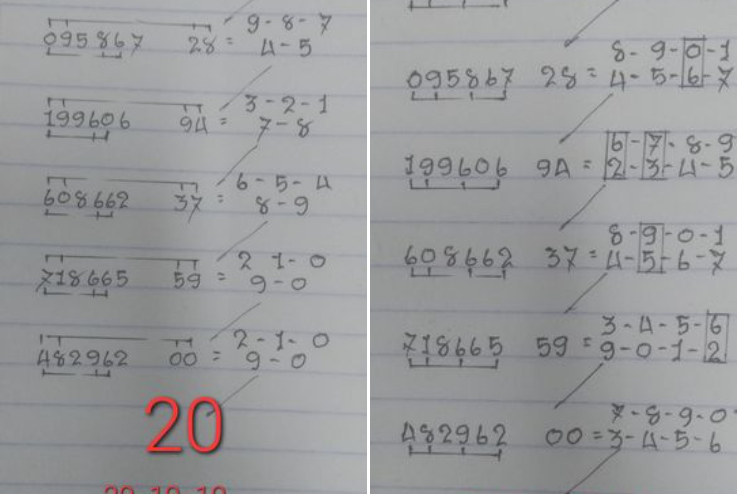 9-8-7
095867 28 = 4-5
3-2-1
199606 94 = 7-8
6-5-4
608662 37 = 8-9
2 1-0
718665 59 = 9-0
2-1-0
482962 00 = 9-0
20
8-9-0-1
095867 28 = 4-5-6-7
6-7-8-9
199606 94 = 2-3-4-5
8-9-0-1
608662 37 = 4-5-6-7
3-4-5-6
718665 59 = 9-0-1-2
7-8-9-0
482962 00 = 3-4-5-6